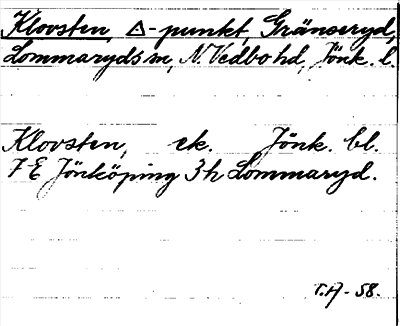 Klovsten, △-punkt, Gränseryd,
Lommaryds sn, N. Vedbo hd, Jönk. l.
Klovsten, ek. Jönk. bl.
7 E Jönköping 3 h Lommaryd.
T.A - 58.